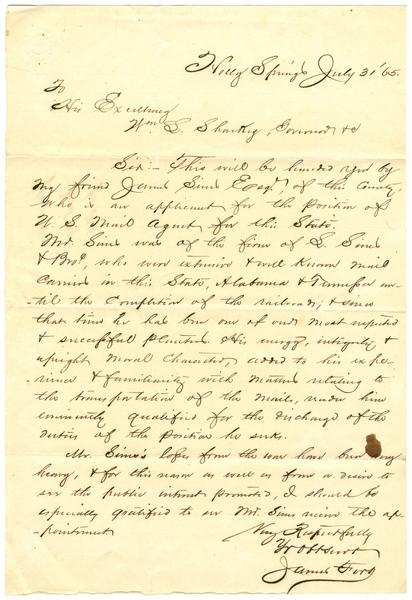 Holly Springs July 31 '65.
To
His Excellency
Wm L. Sharkey, Governor &c
Sir:- This will be handed you by
my friend James Sims Esqr of this County,
who is an applicant for the position of
U. S. Mail Agent for this State.
Mr. Sims was of the firm of L. Sims
& Bro., who were extensive & well known mail
carriers in this State, Alabama & Tennessee un-
til the completion of the railroads; & since
that time he has been one of our most respected
& successful planters. His energy, integrity &
upright moral character, added to his expe-
-rience & familiarity with matters relating to
the transportation of the mails, render him
eminently qualified for the discharge of the
duties of the position he seeks.
Mr. Sims's losses from the war have been very
heavy, & for this reason as well as from a desire to
see the public interest promoted, I should be
especially gratified to see Mr. Sims receive the ap-
-pointment.
Very Respectfully
Yr obt servt
James